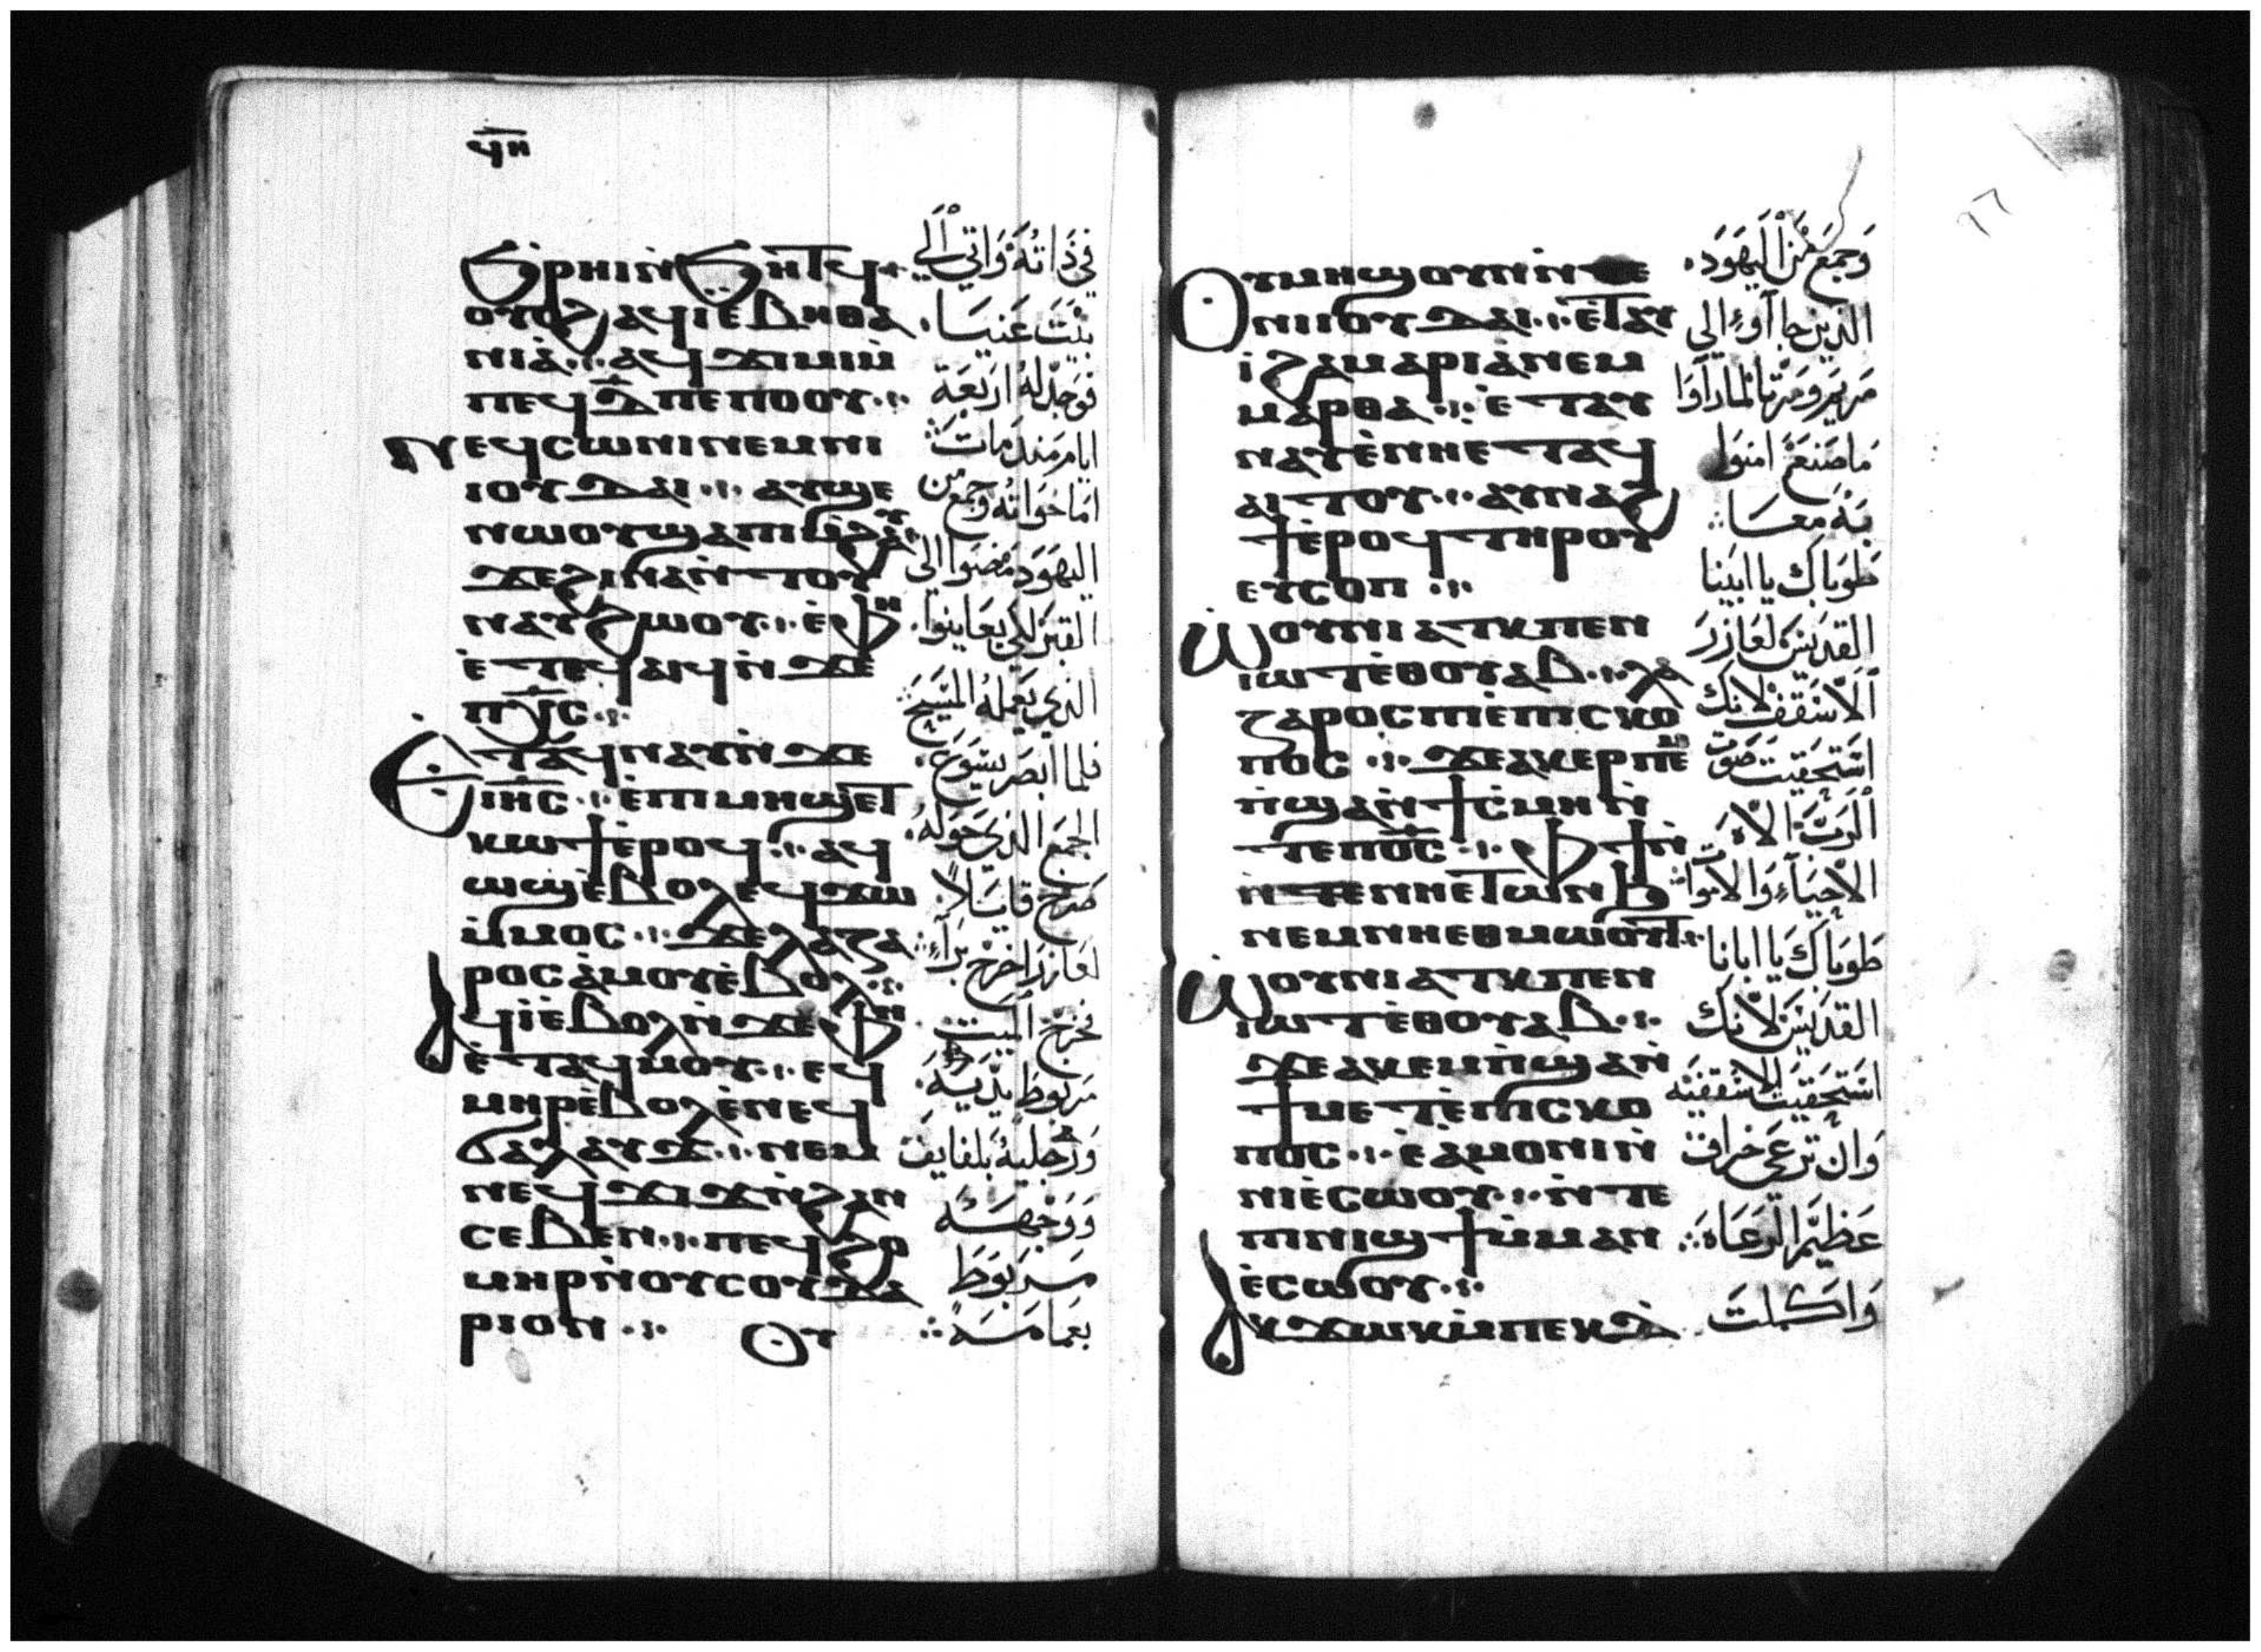 ϥⲏ
ϧⲣⲏⲓ ⲛ̀ϧⲏⲧϥ
ⲟⲩⲟϩ ⲁϥⲓ ⲉ̀ⲃⲏⲑⲁ
ⲛⲓⲁ̀ ⲁϥϫⲓⲙⲓ ⲙ̀
ⲡⲉϥⲇ̅ ⲡⲉⲡⲟⲟⲩ
ⲛⲉϥⲥⲱⲛⲓ ⲛⲉⲙ ⲛⲓ
ⲓⲟⲩⲇⲁⲓ ⲁⲩϣⲉ
ⲛⲱⲟⲩ ϣⲁ ⲡⲓⲙ̀ϩⲁⲩ
ϫⲉ ϩⲓⲛⲁ ⲛ̀ⲧⲟⲩ
ⲛⲁⲩ ϩⲱⲟⲩ ⲉ̀ⲫⲏ
ⲉ̀ⲧⲉϥⲁⲓϥ ⲛ̀ϫⲉ
ⲡⲭ̅ⲥ
ⲉ̀ⲧⲁϥⲛⲁⲩ ⲛ̀ϫⲉ
ⲓⲏ̅ⲥ ⲉ̀ⲡⲓⲙⲏϣ ⲉⲧ
ⲕⲱϯ ⲉ̀ⲣⲟϥ ⲁϥ
ⲱϣ ⲉ̀ⲃⲟⲗ ⲉϥϫⲱ
ⲙ̀ⲙⲟⲥ ϫⲉ ⲗⲁⲍⲁ
ⲣⲟⲥ ⲁ̀ⲙⲟⲩ ⲉ̀ⲃⲟⲗ
ⲁϥⲓ̀ ⲉ̀ⲃⲟⲗ ⲛ̀ϫⲉ ⲫⲏ
ⲉ̀ⲧⲁϥⲙⲟⲩ ⲉϥ
ⲙⲏⲣ ⲉ̀ⲃⲟⲗ ⲉ̀ⲛⲉϥ
ϭⲁⲗⲁⲩϫ ⲛⲉⲙ
ⲛⲉϥϫⲓϫ ⲛ̀ϩⲁⲛ
ⲥⲉⲃⲉⲛ ⲡⲉϥϩⲟ
ⲙⲏⲣ ⲛ̀ⲟⲩⲥⲟⲩⲇⲁ
ⲣⲓⲟⲛ ⲟⲩ
في ذاته واتي الي
بيت عنيا
فوجد له اربعة
ايام منذ مات
اما خواته وجمع من
اليهود مضوا الى
القبر لكي يعاينوا
الذي يعمله المسيح
فلما ابصر يسوع
الجمع الذي حوله
صرخ قايلاً
لعازر اخرج برآء
فخرج الميت
مربوط يديه
ورجليه بلفايف
ووجهه
مربوط
بعمامه
ⲟⲩⲙⲏϣ ⲟⲩⲛ ⲛ̀ⲧⲉ
ⲛⲓⲓⲟⲩⲇⲁⲓ ⲉ̀ⲧⲁⲩ
ⲓ ϩⲁ ⲙⲁⲣⲓⲁ ⲛⲉⲙ
ⲙⲁⲣⲑⲁ ⲉ̀ⲧⲁⲩ
ⲛⲁⲩ ⲉ̀ⲛⲏⲉⲧⲁϥ
ⲁⲓⲧⲟⲩ ⲁⲩⲛⲁϩ
ϯ ⲉ̀ⲣⲟϥ ⲧⲏⲣⲟⲩ
ⲉⲩⲥⲟⲡ
ⲱ̀ⲟⲩⲛⲓⲁⲧⲕ ⲡⲉⲛ
ⲓⲱⲧ ⲉ̀ⲑⲟⲩⲁⲃ ⲗⲁ
ⲍⲁⲣⲟⲥ ⲡⲓⲉ̀ⲡⲓⲥⲕⲟ
ⲡⲟⲥ ϫⲉ ⲁⲕⲉⲣⲡⲉⲙ
ⲡ̀ϣⲁ ⲛ̀ϯⲥ̀ⲙⲏ ⲛ̀
ⲧⲉ ⲡⲟ̅ⲥ ⲫϯ ⲛ̀
ⲛ̀ⲧⲉ ⲛⲏⲉⲧⲱⲛϧ
ⲛⲉⲙ ⲛⲏⲉⲑⲙⲱⲟⲩⲧ
ⲱ̀ⲟⲩⲛⲓⲁⲧⲕ ⲡⲉⲛ
ⲓⲱⲧ ⲉ̀ⲑⲟⲩⲁⲃ
ϫⲉ ⲁⲕⲉⲙⲡ̀ϣⲁ ⲛ̀
ϯⲙⲉⲧⲉ̀ⲡⲓⲥⲕⲟ
ⲡⲟⲥ ⲉ̀ⲁ̀ⲙⲟⲛⲓ ⲛ̀
ⲛⲓⲉ̀ⲥⲱⲟⲩ ⲛ̀ⲧⲉ
ⲡⲓⲛⲓϣϯ ⲙ̀ⲙⲁⲛ
ⲉ̀ⲥⲱⲟⲩ
ⲁⲕϫⲱⲕ ⲙ̀ⲡⲉⲕⲇ
وجمع من اليهود
الذين جاآوء الي
مريم ومرتا لما رآوا
ما صنع امنوا
به معا
طوباك يا ابينا
القديس لعازر
الاسقف لانك
استحقيت صوت
الرب الاه
الاحياء والاموات
طوباك يا ابانا
القديس لانك
استحقيت الاسقفيه
وان ترعي خراف
عظيم الرعاه
واكملت